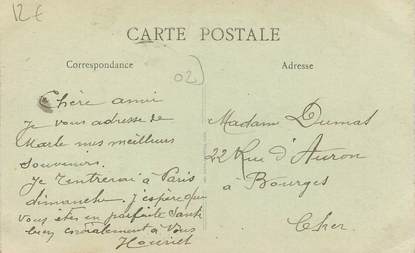 12€
CARTE POSTALE
Correspondance
Adresse
02
Chère amie
Je vous adresse de
Marle mes meilleurs
souvenirs.
Je rentrerai à Paris
dimanche. J'espère que
vous êtes en parfaite santé
bien cordialement à vous
Madame Dumas
22 Rue d'Auron
à Bourges
Cher